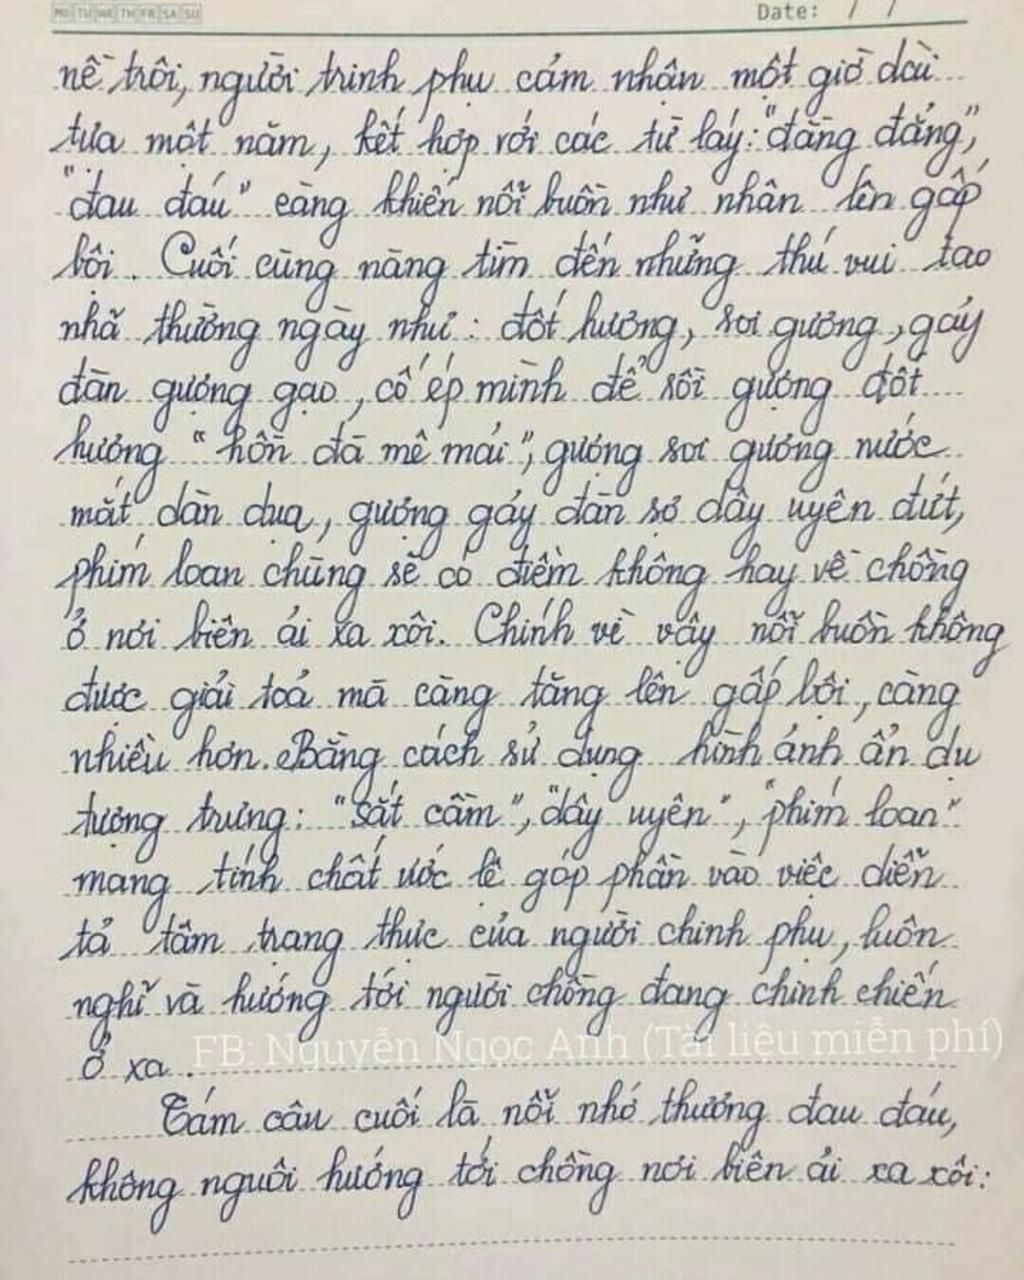 MO TU WE TH FR SA SU
Date: / /
nề trôi, người trinh phụ cảm nhận một giờ dài
tựa một năm, kết hợp với các từ láy: "đằng đẵng",
"đau đáu" càng khiến nỗi buồn như nhân lên gấp
bội. Cuối cùng nàng tìm đến những thú vui tao
nhã thường ngày như: đốt hương, soi gương, gảy
đàn gượng gạo, cố ép mình để rồi gượng đốt
hương "hồn đã mê mải", gượng soi gương nước
mắt dàn dụa, gượng gảy đàn sợ dây uyên đứt,
phím loan chùng sẽ có điềm không hay về chồng
ở nơi biên ải xa xôi. Chính vì vậy nỗi buồn không
được giải toả mà càng tăng lên gấp bội, càng
nhiều hơn. Bằng cách sử dụng hình ảnh ẩn dụ
tượng trưng: "sắt cầm", "dây uyên", "phím loan"
mang tính chất ước lệ góp phần vào việc diễn
tả tâm trạng thực của người chinh phụ, luôn
nghĩ và hướng tới người chồng đang chinh chiến
ở xa.
FB: Nguyễn Ngọc Anh (Tài liệu miễn phí)
Tám câu cuối là nỗi nhớ thương đau đáu,
không nguôi hướng tới chồng nơi biên ải xa xôi: